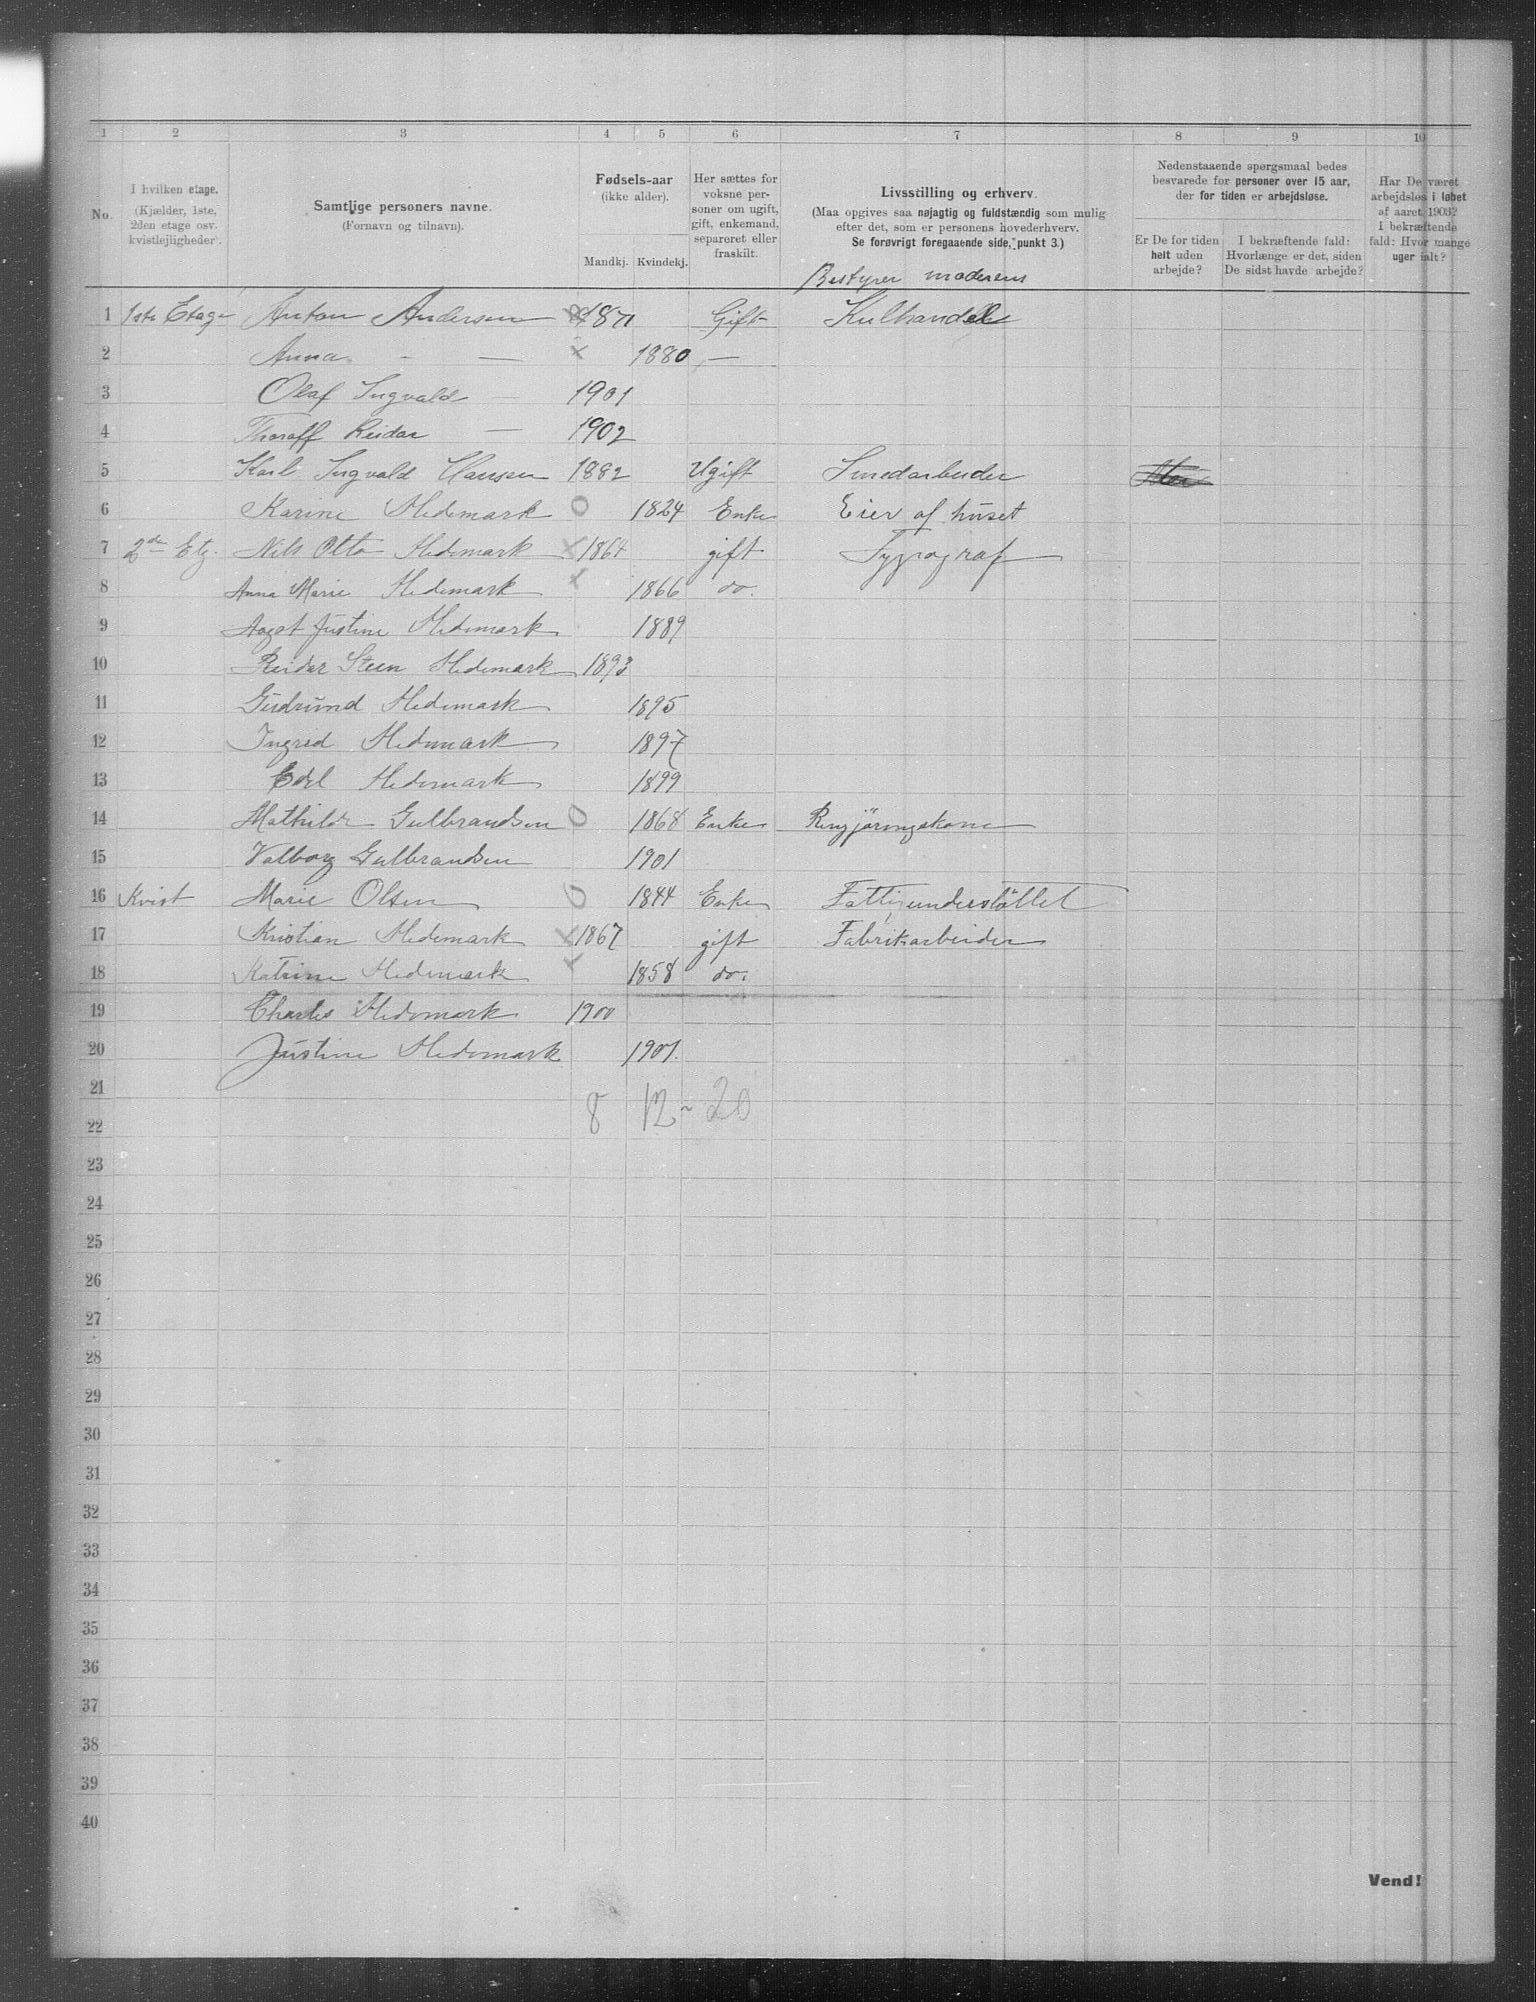 1 2 3 4 5 6 7 8 9 10
No.
I hvilken etage.
(Kjælder, 1ste, 2den etage osv. kvistlejligheder).
Samtlige personers navne.
(Fornavn og tilnavn).
Fødsels-aar
(ikke alder).
Mandkj. Kvindekj.
Her sættes for voksne personer om ugift, gift, enkemand, separeret eller fraskilt.
Livsstilling og erhverv.
(Maa opgives saa nøjagtig og fuldstændig som mulig
efter det, som er personens hovederhverv.
Se forøvrigt foregaaende side, punkt 3.)
Nedenstaaende spørgsmaal bedes
besvarede for personer over 15 aar,
der for tiden er arbejdsløse.
Er De for tiden helt uden arbejde?
I bekræftende fald: Hvorlænge er det, siden De sidst havde arbejde?
Har De været arbejdsløs i løbet af aaret 1903? I bekræftende fald: Hvor mange uger ialt?
Bestyrer moderens
1 1ste Etage Anton Andersen 1871 Gift Kulhandel
2 Anna - — x 1880 —
3 Olaf Ingvald — 1901
4 Thoralf Reidar — 1902
5 Karl Ingvald Hanssen 1882 Ugift Smedarbeider
6 Karine Hedemark O 1824 Enke Eier af huset
7 2den Etg. Nils Otto Hedemark x 1864 gift Typograf
8 Anna Marie Hedemark x 1866 do.
9 Aagot Justine Hedemark 1889
10 Reidar Steen Hedemark 1893
11 Gudrund Hedemark 1895
12 Ingrid Hedemark 1897
13 Edel Hedemark 1899
14 Mathilde Gulbrandsen O 1868 Enke Rengjöringskone
15 Valborg Gulbrandsen 1901
16 Kvist Marie Olsen O 1844 Enke Fattigunderstöttet
17 Kristian Hedemark x 1867 gift Fabrikarbeider
18 Katrine Hedemark x 1858 do.
19 Charles Hedemark 1900
20 Justine Hedemark 1901.
21
8 12 ~ 20
22
23
24
25
26
27
28
29
30
31
32
33
34
35
36
37
38
39
40
Vend!